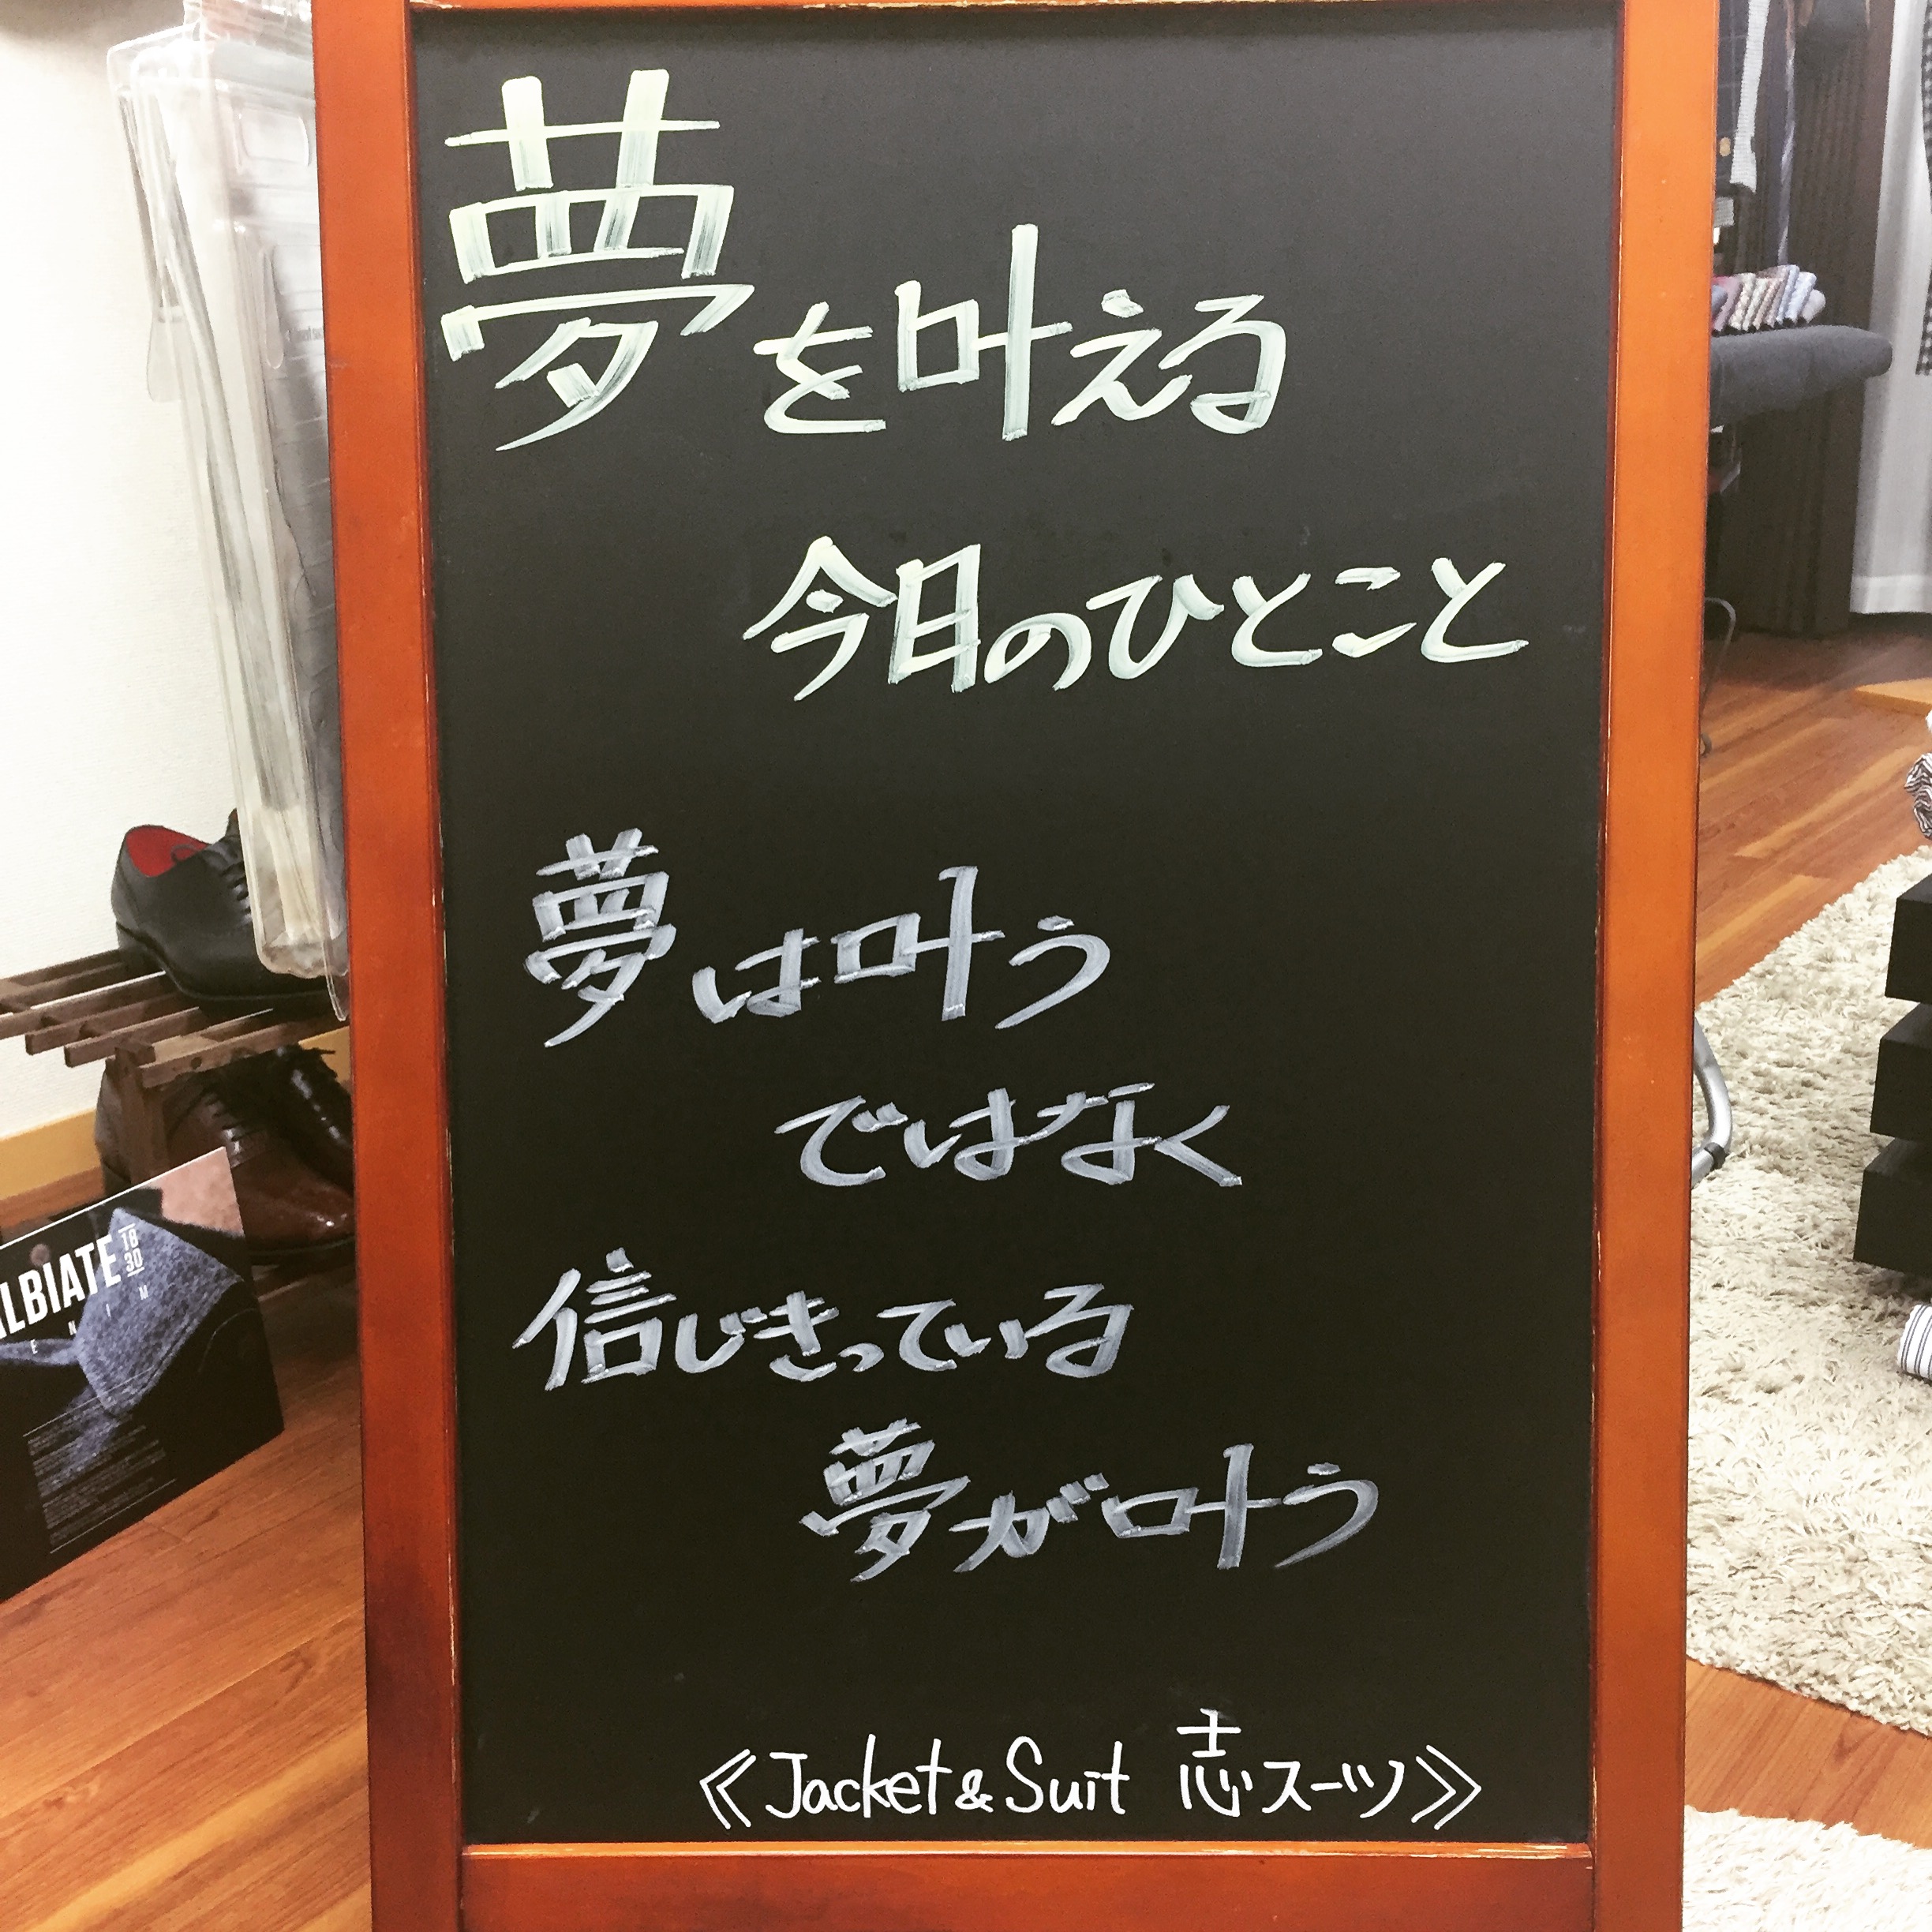 夢を叶える
今日のひとこと
夢は叶う
ではなく
信じきっている
夢が叶う
《Jacket&Suit 志スーツ》
LBIATE 18 30